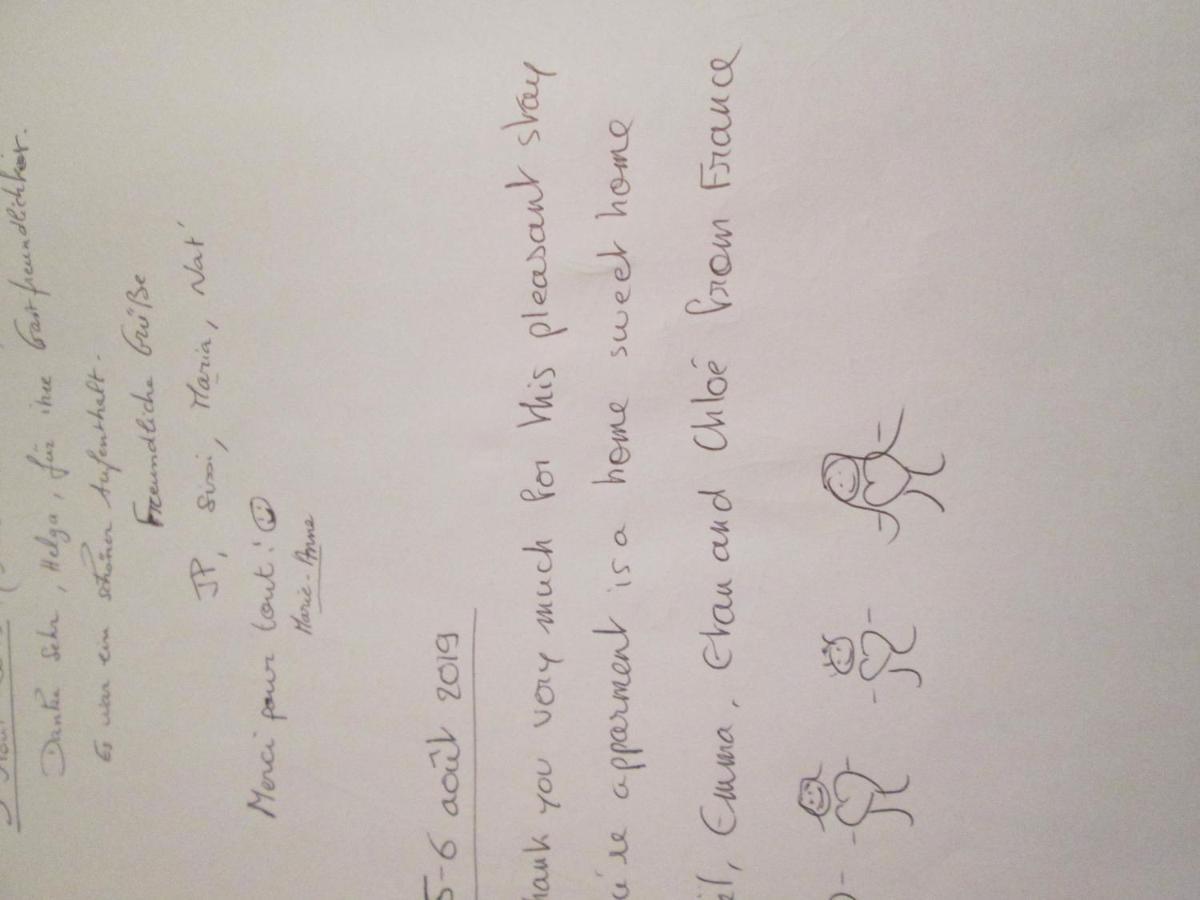 Danke sehr, Helga, für ihre Gastfreundlichkeit.
Es war ein schöner Aufenthalt.
Freundliche Grüße
JP, Sissi, Maria, Nat'
Merci pour tout! ☺
Marie-Anne
5-6 août 2019
hank you very much for this pleasant stay
apparment is a home sweet home
Emma, Etan and Chloé from France